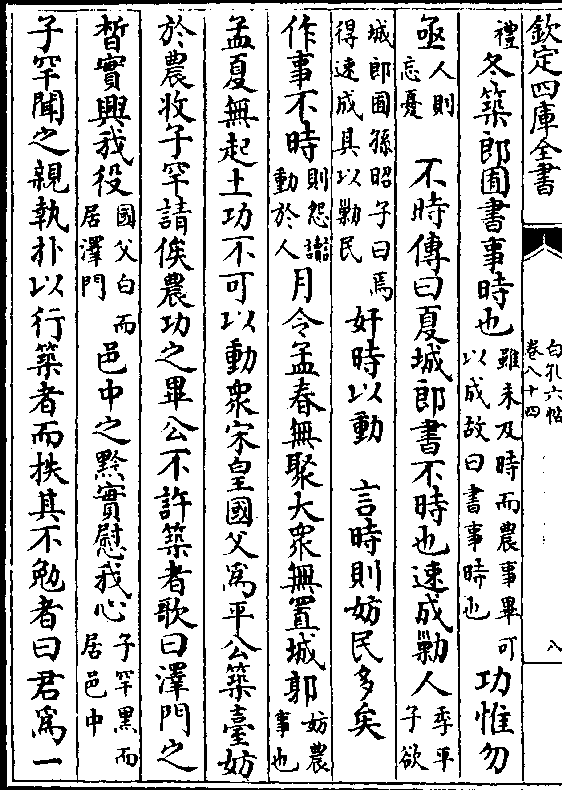 欽定四庫全書
白孔六帖
卷八十四
八
禮冬築郎囿書事時也雖未及時而農事畢可以成故曰書事時也功惟勿
亟人則忘憂不時傳曰夏城郎書不時也速成勦人季平子欲
城郎囿孫昭子曰焉得速成其以勦民好時以動言時則妨民多矣
作事不時則怨讟動於人月令孟春無聚大衆無置城郭妨農事也
孟夏無起土功不可以動衆宋皇國父爲平公築臺妨
於農收子罕請俟農功之畢公不許築者歌曰澤門之
晳實興我役國父白而居澤門邑中之黔實慰我心子罕黑而居邑中
子罕聞之親執朴以行築者而抶其不勉者曰君爲一